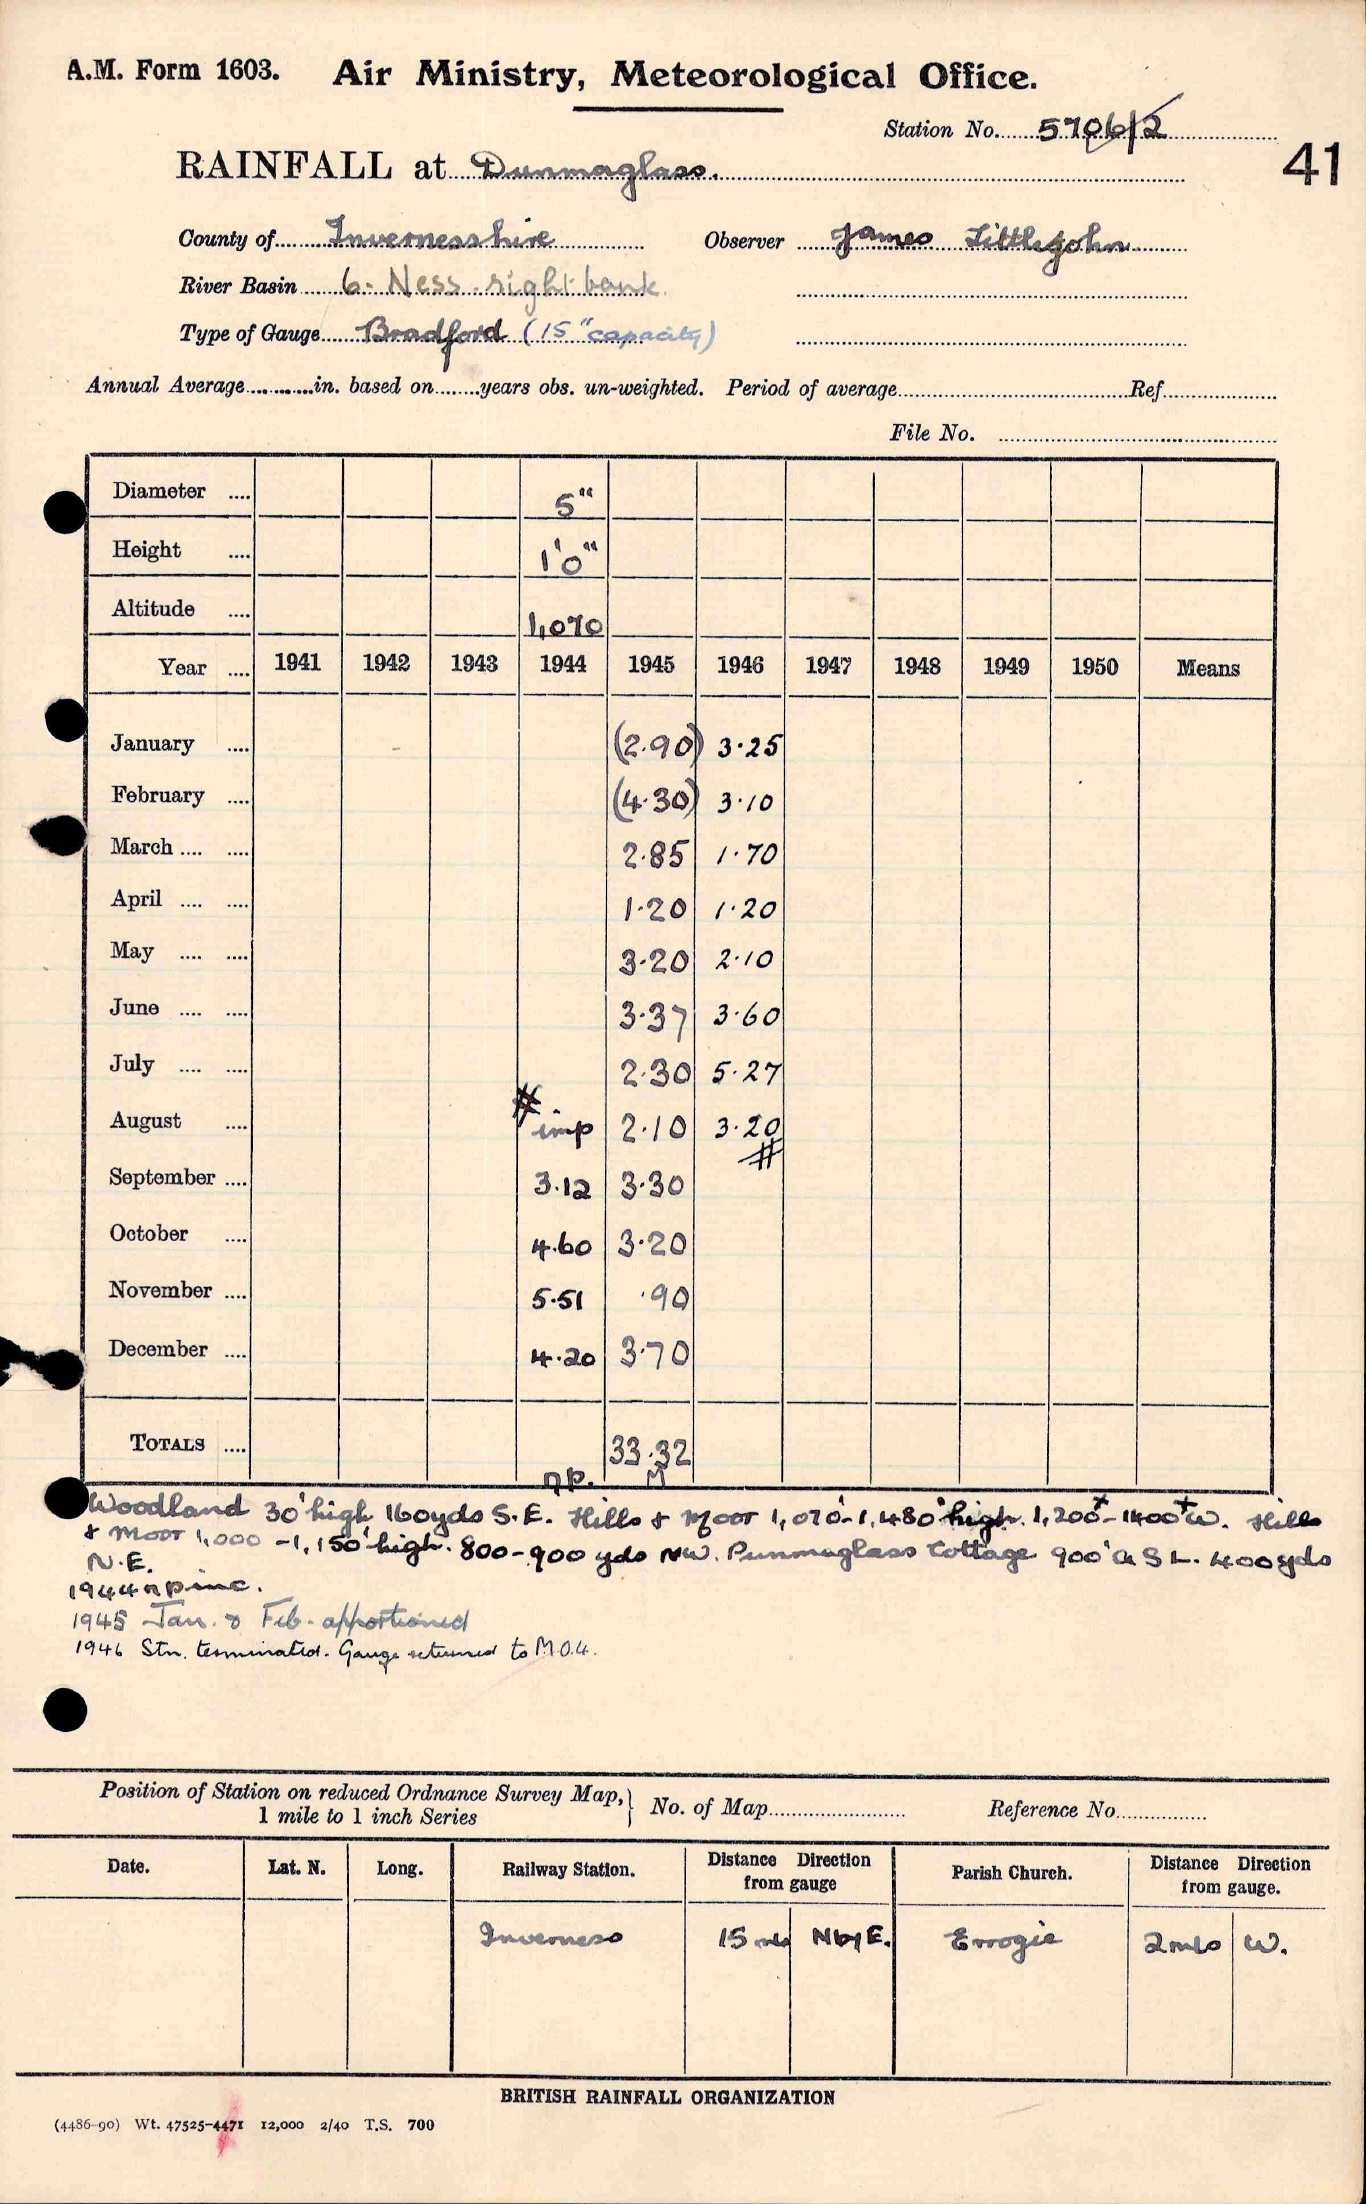 A.M. Form 1603. Air Ministry, Meteorological Office.
Station No. 5706/2
41
RAINFALL at Dunmaglass.
County of Invernesshire Observer James Littlejohn
River Basin 6. Ness right bank
Type of Gauge Bradford (15" capacity)
Annual Average in. based on years obs. un-weighted. Period of average Ref.
File No.
Diameter 5"
Height 1'0"
Altitude 1,070
Year 1941 1942 1943 1944 1945 1946 1947 1948 1949 1950 Means
January (2.90) 3.25
February (4.30) 3.10
March 2.85 1.70
April 1.20 1.20
May 3.20 2.10
June 3.37 3.60
July 2.30 5.27
August # imp 2.10 3.20 #
September 3.12 3.30
October 4.60 3.20
November 5.51 .90
December 4.20 3.70
TOTALS np. 33.32 M
Woodland 30' high 160yds S.E. Hills & Moor 1,070'-1,480' high. 1,200+-1400+ W. Hills
& Moor 1,000-1,150' high. 800-900 yds NW. Dunmaglass Cottage 900' a S L. 400yds
N.E.
1944 np inc.
1945 Jan. & Feb. apportioned
1946 Stn. terminated. Gauge returned to M.O.4.
Position of Station on reduced Ordnance Survey Map, 1 mile to 1 inch Series } No. of Map Reference No.
Date. Lat. N. Long. Railway Station. Distance Direction from gauge Parish Church. Distance Direction from gauge.
Inverness 15 mls N by E. Errogie 2 mls W.
BRITISH RAINFALL ORGANIZATION
(4486-90) Wt. 47525-4471 12,000 2/40 T.S. 700